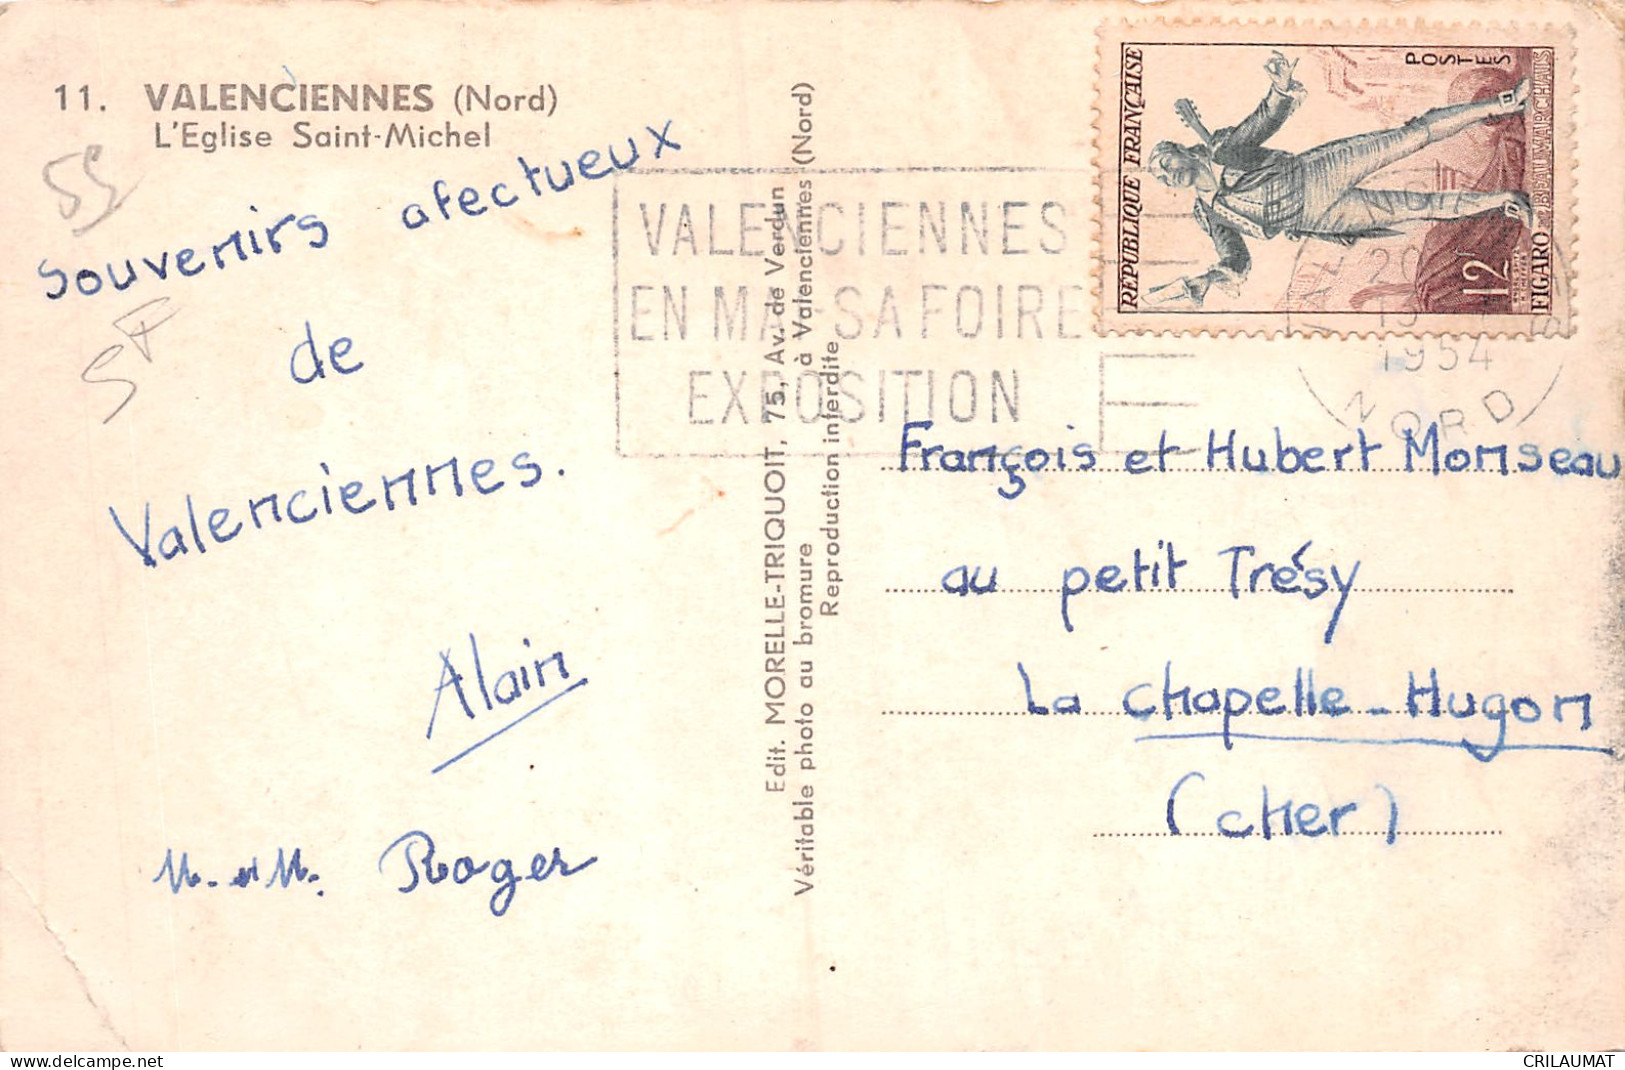 11. VALENCIENNES (Nord)
L'Eglise Saint-Michel
55
5F
Souvenirs afectueux
de
Valenciennes.
Alain
M. et M. Roger
Edit. MORELLE-TRIQUOIT, 75, Av. de Verdun
Véritable photo au bromure à Valenciennes (Nord)
Reproduction interdite
VALENCIENNES
EN MAI SA FOIRE
EXPOSITION
REPUBLIQUE FRANÇAISE
POSTES
12
FIGARO BEAUMARCHAIS
VALENCIENNES
20
1954
NORD
François et Hubert Monseau
au petit Trésy
La Chapelle-Hugon
(Cher)
www.delcampe.net
CRILAUMAT